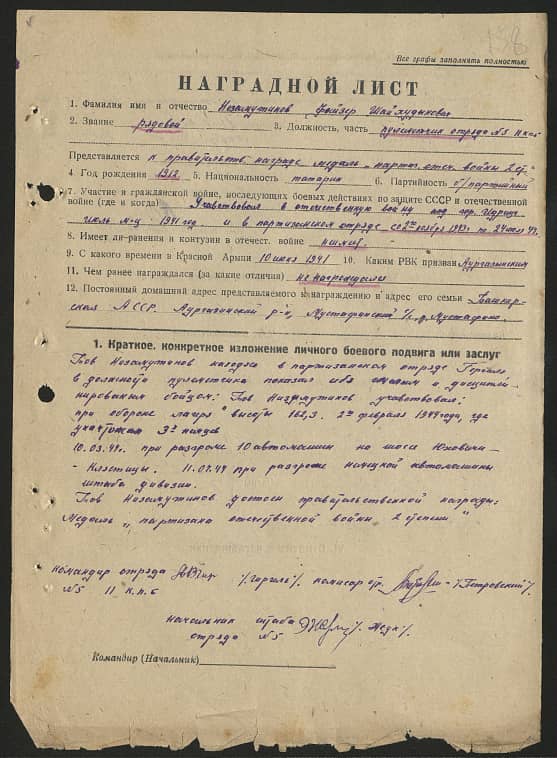 138
Все графы заполнять полностью
НАГРАДНОЙ ЛИСТ
1. Фамилия имя и отчество Незамутинов Фойзер Шайхудинович
2. Звание рядовой 3. Должность, часть пулеметчик отряда №5 11
Представляется к правительств. награде медаль „партиз. отеч. войны 2 ст."
4. Год рождения 1912 5. Национальность татарин 6. Партийность б/партийный
7. Участие в гражданской войне, последующих боевых действиях по защите СССР и отечественной
войне (где и когда) Учавствовал в отечественную войну под гор.
июль м-ц 1941 год. и в партизанском отряде со 2 ноября 1943 г. по 24
8. Имеет ли ранения и контузии в отечест. войне не имеет
9. С какого времени в Красной Армии 10 июня 1941 10. Каким РВК призван Аургазинским
11. Чем ранее награждался (за какие отличия) не награждался
12. Постоянный домашний адрес представляемого к награждению и адрес его семьи Башкир-
ская АССР. Аургазинский р-н, Мустафинский с/с д. Мустафино.
1. Краткое, конкретное изложение личного боевого подвига или заслуг
Тов Незамутинов находясь в партизанском отряде Гоголя,
в должности пулеметчика показал себя смелым и дисципли-
нированным бойцом: Тов Незамутинов учавствовал:
при обороне лагеря высоты 162,3. 2го февраля 1944 года, где
уничтожил 3х немцев
10.03.44г. при разгроме 10 автомашин на шоссе Юховичи-
- Клястицы. 11.04.44 при разгроме немецкой автомашины
штаба дивизии.
Тов Незамутинов достоин правительственной награды:
Медаль „партизана отечественной войны 2 степени"
командир отряда /Гоголь/. комисар отр. /Петровский/
№5 11 к.п.б
начальник штаба
отряда №5
Командир (Начальник)